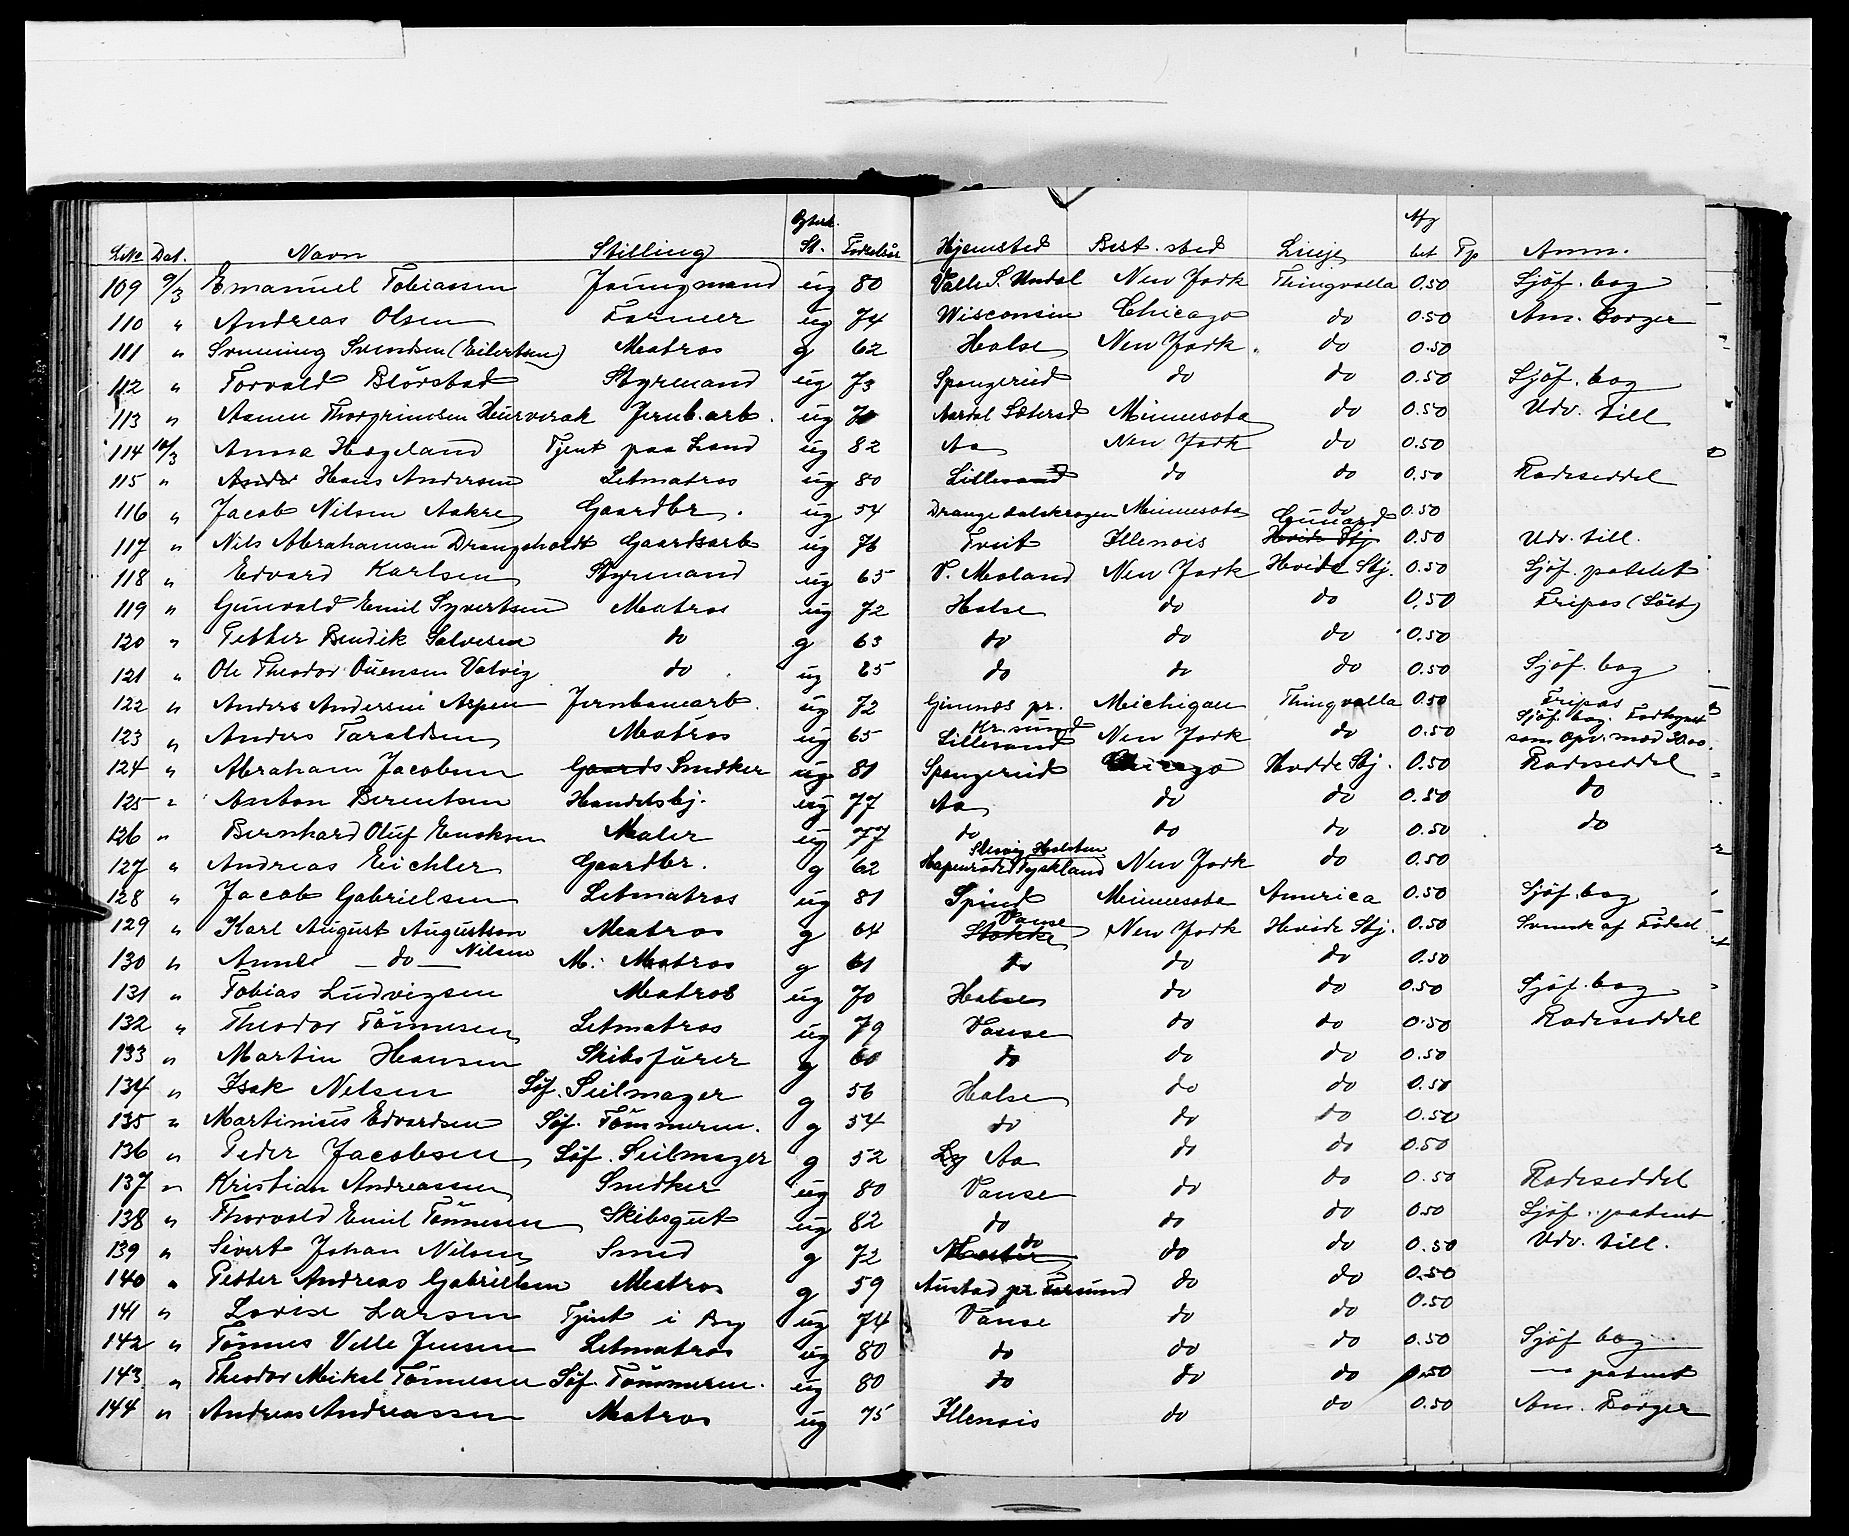 LNo Dat. Navn Stilling Ægtesk. St. Fødselsår Hjemsted Best. sted Linje Afg bet Fp Anm.
109 9/3 Emanuel Tobiassen Jüngmand üg 80 Valle S. Undal New York Thingvalla 0.50 Sjöf. bog
110 " Andreas Olsen Farmer üg 74 Wisconsin Chicago do 0.50 Am. Borger
111 " Svenning Svendsen (Eilertsen) Matros g 62 Halse New York. do 0.50
112 " Torvald Blörstad Styrmand üg 73 Spangereid do do 0.50 Sjöf. bog
113 " Aanen Thorgrimsen Jernb.arb. üg 70 Aardal Sætersd Minnesota do 0.50 Udv. till
114 10/3 Anna Hægeland Tjent paa Land üg 82 Aa New York do 0.50
115 " Ander Hans Andersen Letmatros üg 80 Lillesand do do 0.50 Rodeseddel
116 " Jacob Nilsen Aakre Gaardbr. üg 54 Drangedalskrogen Minnesota do 0.50
117 " Nils Abrahamsen Drangsholdt Gaardsarb üg 76 Tveit Illenois Hvide Stj Cunard 0.50 Udv. till.
118 " Edvard Karlsen Styrmand üg 65 V. Moland New York Hvide Stj. 0.50 Sjöf. patent
119 " Gunvald Emil Syvertsen Matros üg 72 Halse do do 0.50 Fripas (Söet)
120 " Petter Bendik Salvesen do g 63 do do do 0.50
121 " Ole Theodor Ouensen Valvig do üg 65 do do do 0.50 Sjöf. bog
122 " Anders Andersen Aspen Jernbanearb. üg 72 Gimnes pr. Kr.sund Michigan Thingvalla 0.50 Fripas
123 " Anders Taraldsen Matros üg 65 Lillesand New York do 0.50 Sjöf. bog. som opv. med
124 " Abraham Jacobsen Gaards Snedker üg 81 Spangereid Chicago Hvide Stj. 0.50 Rodeseddel
125 " Anton Berentsen Handelsbj. üg 77 Aa do do 0.50 do
126 " Bernhard Oluf Enoksen Maler üg 77 do do do 0.50 do
127 " Andreas Eichler Gaardbr. g 62 Slesvig Holsten Hapenrade Tyskland New York do 0.50
128 " Jacob Gabrielsen Letmatros üg 81 Spind Minnesota America 0.50 Sjöf. bog
129 " Karl August Augustson Matros g 64 Stokke Vanse New York Hvide Stj. 0.50 Svensk af Födsel
130 " Anne — do — Nilsen M: Matros g 61 do do do 0.50
131 " Tobias Ludvigsen Matros üg 70 Halse do do 0.50 Sjöf. bog
132 " Theodor Tönnesen Letmatros üg 79 Vanse do do 0.50 Rodeseddel
133 " Martin Hansen Skibsförer g 60 do do do 0.50
134 " Isak Nelsen Söf. Seilmager g 56 Halse do do 0.50
135 " Martinius Edvardsen Söf. Tömmerm. g 54 do do do 0.50
136 " Peder Jacobsen Söf. Seilmager g 52 Ly Aa do do 0.50
137 " Kristian Andreassen Snedker üg 80 Vanse do do 0.50 Rodeseddel
138 " Thorvald Emil Tönnesen Skibsgut üg 82 do do do 0.50 Sjöf. patent
139 " Sivert Johan Nilsen Smed g 72 do do do 0.50 Udv. till.
140 " Petter Andreas Gabrielsen Matros g 59 Austad pr. Farsund do do 0.50
141 " Lovise Larsen Tjent i By üg 74 Vanse do do 0.50
142 " Tönnes Velle Jensen Letmatros üg 80 do do do 0.50 Sjöf bog
143 " Theodor Mikal Tönnesen Söf. Tömmerm. üg 80 do do do 0.50 — patent
144 " Andreas Andreassen Matros üg 75 Illenois do do 0.50 Am. Borger